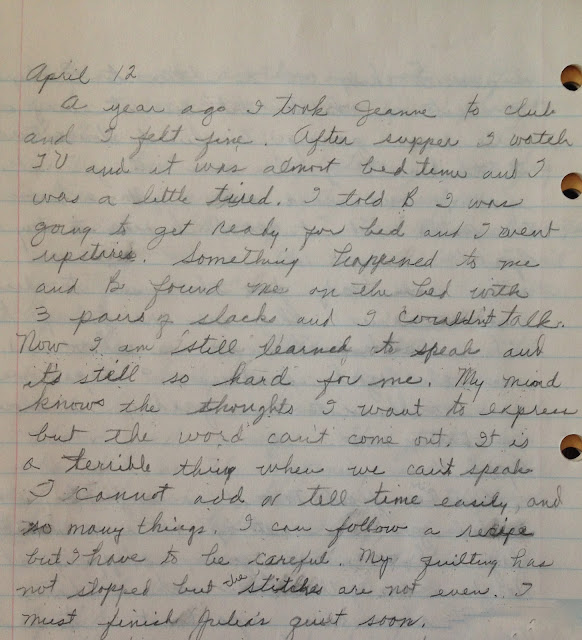 April 12
A year ago I took Jeanne to club
and I felt fine. After supper I watch
TV and it was almost bed time and I
was a little tired. I told B I was
going to get ready for bed and I went
upstires. Something happened to me
and B found me on the bed with
3 pairs of slacks and I couldn't talk.
Now I am still learned to speak and
it's still so hard for me. My mind
knows the thoughts I want to express
but the word can't come out. It is
a terrible thing when we can't speak
I cannot add or tell time easily, and
so many things. I can follow a recipe
but I have to be careful. My quilting has
not stopped but the stitches are not even. I
must finish Julia's quiet soon.